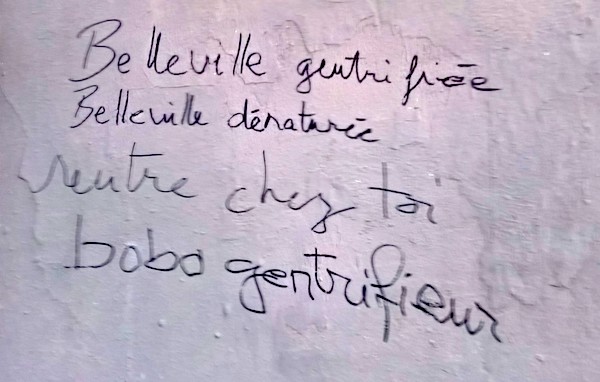 Belleville gentrifiée
Belleville dénaturée
rentre chez toi
bobo gentrifieur